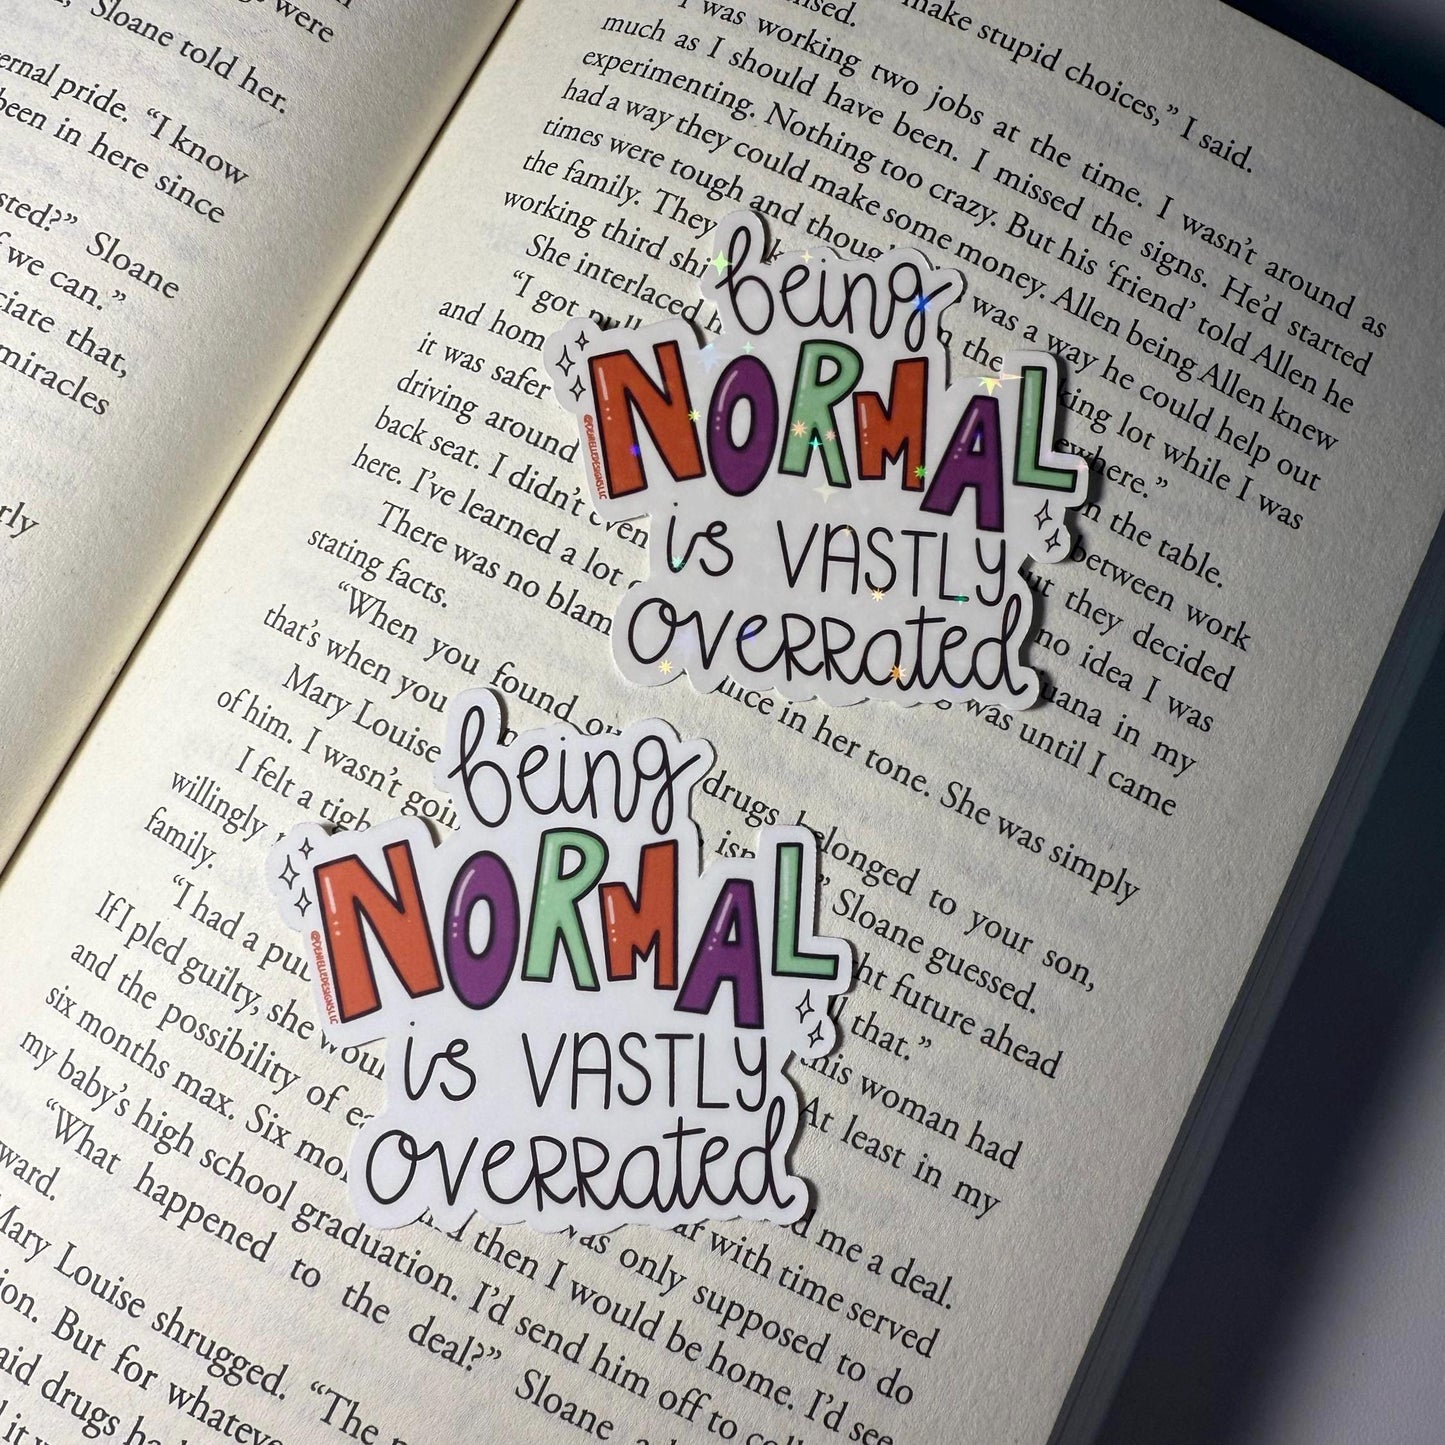 ngs were
Sloane told her.
ernal pride. “I know
been in here since
sted?” Sloane
f we can.”
ciate that,
miracles
rly
make stupid choices,” I said.
I was working two jobs at the time. I wasn’t around as
much as I should have been. I missed the signs. He’d started
experimenting. Nothing too crazy. But his ‘friend’ told Allen he
had a way they could make some money. Allen being Allen knew
times were tough and thoug was a way he could help out
the family. They the king lot while I was
working third shi ewhere.”
She interlaced h n the table.
“I got pull between work
and hom ut they decided
it was safer no idea I was
driving around uana in my
back seat. I didn’t even was until I came
here. I’ve learned a lot
There was no blam uice in her tone. She was simply
stating facts.
“When you found ou drugs belonged to your son,
that’s when you isn ” Sloane guessed.
Mary Louise ht future ahead
of him. I wasn’t goin ll that.”
I felt a tigh this woman had
willingly At least in my
family.
“I had a pu d me a deal.
If I pled guilty, she wou with time served
and the possibility of ea was only supposed to do
six months max. Six mo then I would be home. I’d see
my baby’s high school graduation. I’d send him off to co
“What happened to the deal?” Sloane
ward.
Mary Louise shrugged. “The
ion. But for whateve
aid drugs ha
it w
being
NORMAL
@DENIELLEDESIGNSLLC
is VASTLY
overrated
being
NORMAL
@DENIELLEDESIGNSLLC
is VASTLY
overrated